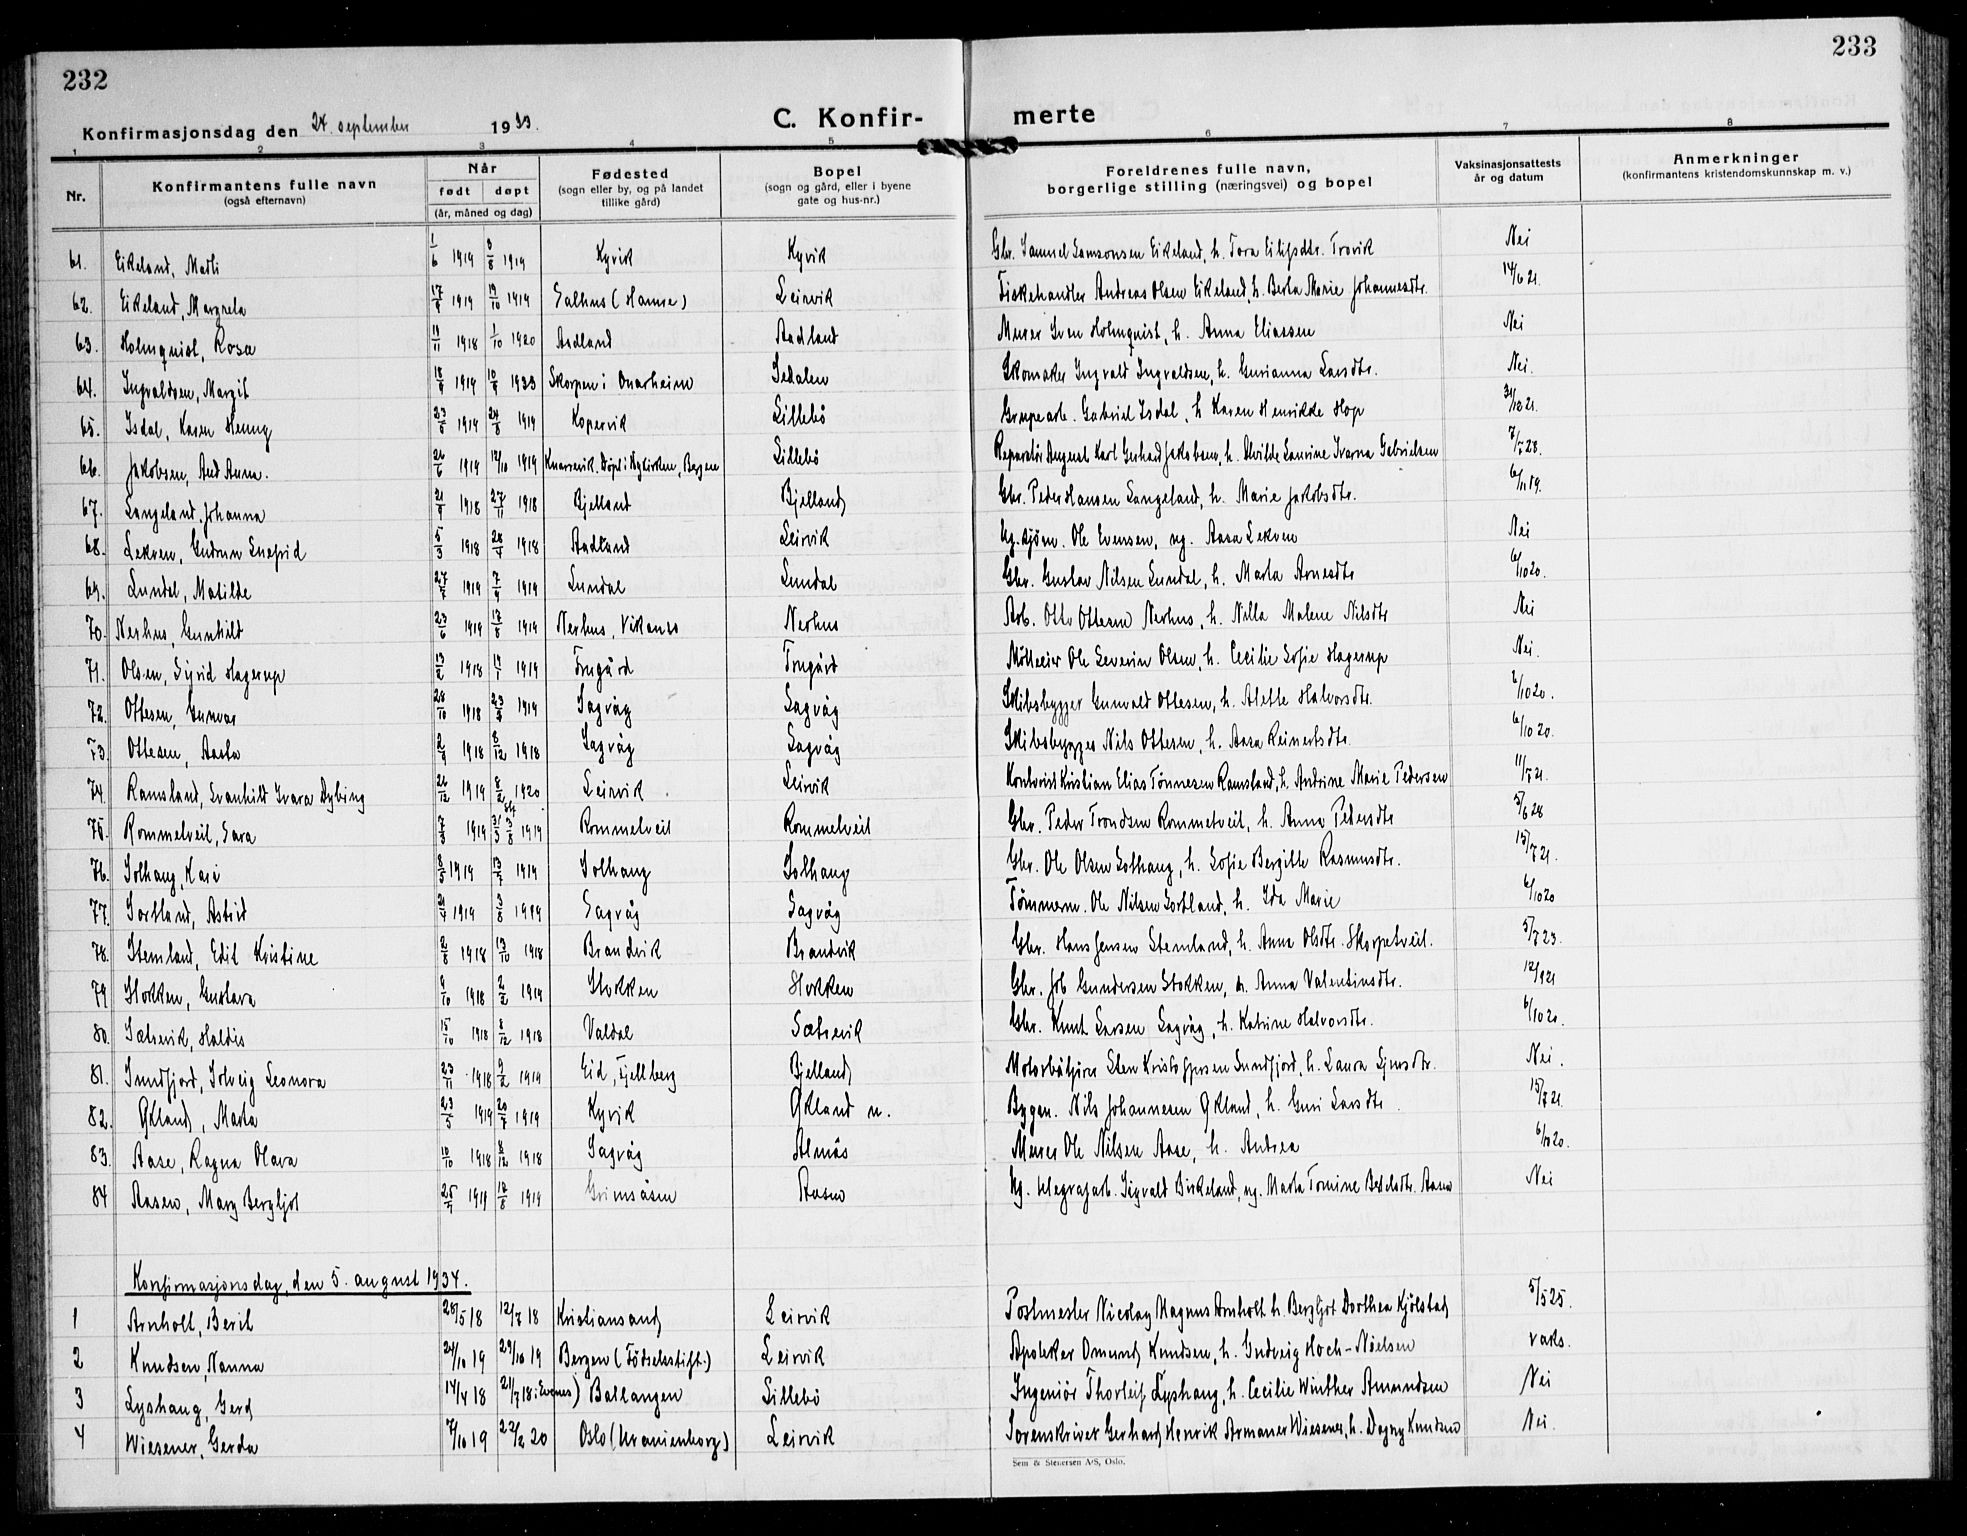 232
233
Konfirmasjonsdag den 24. september 1933.
C. Konfir-
merte
1 2 3 4 5 6 7 8
Nr.
Konfirmantens fulle navn
(også efternavn)
Når
født døpt
(år, måned og dag)
Fødested
(sogn eller by, og på landet
tillike gård)
Bopel
(sogn og gård, eller i byene
gate og hus-nr.)
Foreldrenes fulle navn,
borgerlige stilling (næringsvei) og bopel
Vaksinasjonsattests
år og datum
Anmerkninger
(konfirmantens kristendomskunnskap m. v.)
61. Eikeland, Marli 1/6 1919 3/8 1919 Kyvik Kyvik Gbr. Samuel Samsonsen Eikeland, h. Tora Eilifsdtr. Trovik Nei
62. Eikeland, Margreta 17/9 1919 19/10 1919 Salhus (Hamre) Leirvik Fiskehandler Andreas Olsen Eikeland, h. Berta Marie Johannesdtr. 14/6 21.
63. Holmquist, Rosa 11/11 1918 1/10 1920 Aadland Aadland Murer Sven Holmquist, h. Anna Eliassen Nei
64. Ingvaldsen, Margit 18/9 1919 10/9 1933 Skorpen i Onarheim Sedalen Skomaker Ingvald Ingvaldsen, h. Gurianna Larsdtr. Nei.
65. Isdal, Karen Henny 1919 24/8 1919 Kopervik Lillebö Grupearb. Gabriel Isdal, h. Karen Henrikke Hop 31/10 21.
66. Jakobsen, Aud Anna. 26/6 1919 12/10 1919 Knarrevik. Döpt i Nykirken, Bergen Lillebö Reparatör August Karl Gerhard Jakobsen, h. Alvilde Laurine Ivarna Gabrielsen 7/7 28.
67. Langeland, Johanna 21/9 1918 27/11 1918 Bjelland Bjelland Gbr. Peder Hansen Langeland, h. Marie Jakobsdtr. 6/11 19.
68. Lekven, Gudrun Snefrid 5/3 1918 28/4 1918 Aadland Leirvik Ug. sjöm. Ole Evensen, ug. Aasa Lekven Nei
69. Lundal, Matilde 27/7 1919 7/9 1919 Lundal Lundal Gbr. Gustav Nilsen Lundal, h. Marta Arnesdtr 6/10 20.
70. Nerhus, Gunhild 23/6 1919 17/8 1919 Nerhus, Vikanes Nerhus Arb. Otto Ottesen Nerhus, h. Nilla Malene Nilsdtr Nei
71. Olsen, Sigrid Hagerup 13/2 1918 1919 Frugård Frugård Mölleeier Ole Severin Olsen, h. Cecilie Sofie Hagerup Nei.
72. Ottesen, Gunvor 28/10 1918 1919 Sagvåg Sagvåg Skibsbygger Gunvald Ottesen, h. Alette Halvorsdtr. 6/10 20.
73. Ottesen, Aasta 2/9 1918 8/12 1918 Sagvåg Sagvåg Skibsbygger Nils Ottesen, h. Aasa Reinertsdtr. 6/10 20.
74. Ramsland, Svanhild Ivara Dybing 26/12 1919 8/2 1920 Leirvik Leirvik Kontorist Kristian Elias Tönnesen Ramsland, h. Andrine Marie Pedersen 11/7 21.
75. Rommetveit, Sara 7/3 1919 31/5 3/8 1919 Rommetveit Rommetveit Gbr. Peder Trondsen Rommetveit, h. Anna Pedersdtr 5/6 28
76. Solhaug, Kari 8/5 1919 13/7 1919 Solhaug Solhaug Gbr. Ole Olsen Solhaug, h. Sofie Bergitte Rasmusdtr. 15/7 21.
77. Sortland, Astrid 21/4 1919 3/8 1919 Sagvåg Sagvåg Tömmerm. Ole Nilsen Sortland, h. Ida Marie 6/10 20
78. Stemland, Edit Kristine 2/8 1918 13/10 1918 Brandvik Brandvik Gbr. Hans Jensen Stemland, h. Anna Olsdtr. Skorpetveit. 5/7 23.
79 Stokken, Gustava 9/10 1918 2/2 1919 Stokken Stokken Gbr. Job Gundersen Stokken, h. Anna Valentinsdtr. 12/9 21
80. Sætrevik, Haldis 15/10 1918 8/12 1918 Valdal Sætrevik Gbr. Knut Larsen Sagvåg, h. Katrine Halvorsdtr. 6/10 20.
81. Sundfjord, Solveig Leonora 23/11 1918 9/2 1919 Eid, Fjellberg Bjelland Motorbåtförer Sten Kristoffersen Sundfjord, h. Laura Ejnesdtr. Nei.
82. Økland, Marta 23/5 1919 20/7 1919 Kyvik Økland n. Bygm. Nils Johannesen Økland, h. Guri Larsdtr. 15/7 21.
83. Aase, Ragna Olava 10/10 1918 8/12 1918 Sagvåg Almås Murer Ole Nilsen Aase, h. Andrea 6/10 20.
84 Aasen, Mary Bergljot 25/4 1919 17/8 1919 Grimsåsen Aasen Ug. telegrafarb. Sigvald Birkeland, ug. Marta Tomine Bertelsdtr. Aasen Nei
Konfirmasjonsdag, den 5. august 1934.
1 Arnholt, Berit 28/5 18 12/7 18 Kristiansand Leirvik Postmester Nicolay Magnus Arnholt h. Bergljot Dorthea Kjölstad 5/5 25.
2 Knudsen, Nanna 24/10 19 29/10 19 Bergen (Födselsstift.) Leirvik Apoteker Omund Knudsen, h. Gudveig Hoch-Nielsen vaks.
3 Lyshaug, Gerd 14/4 18 21/7 18 i Evenes) Ballangen Lillebö Ingeniör Thorleif Lyshaug, h. Cecilie Winther Amundsen Nei
4 Wiesener, Gerda 7/10 19 22/2 20 Oslo (Uranienborg) Leirvik Sorenskriver Gerhard Henrik Armauer Wiesener, h. Dagny Knudsen Nei.
Sem & Stenersen A/S, Oslo.